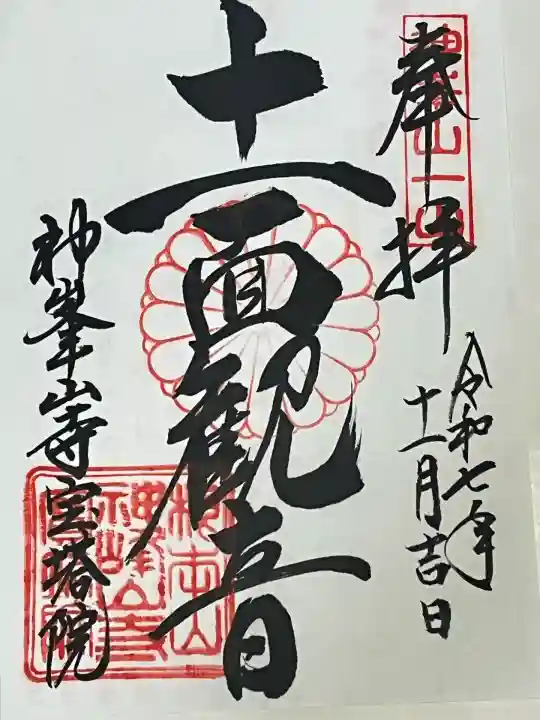 奉拝
令和七年
十一月吉日
十一面観音
神峯山寺宝塔院